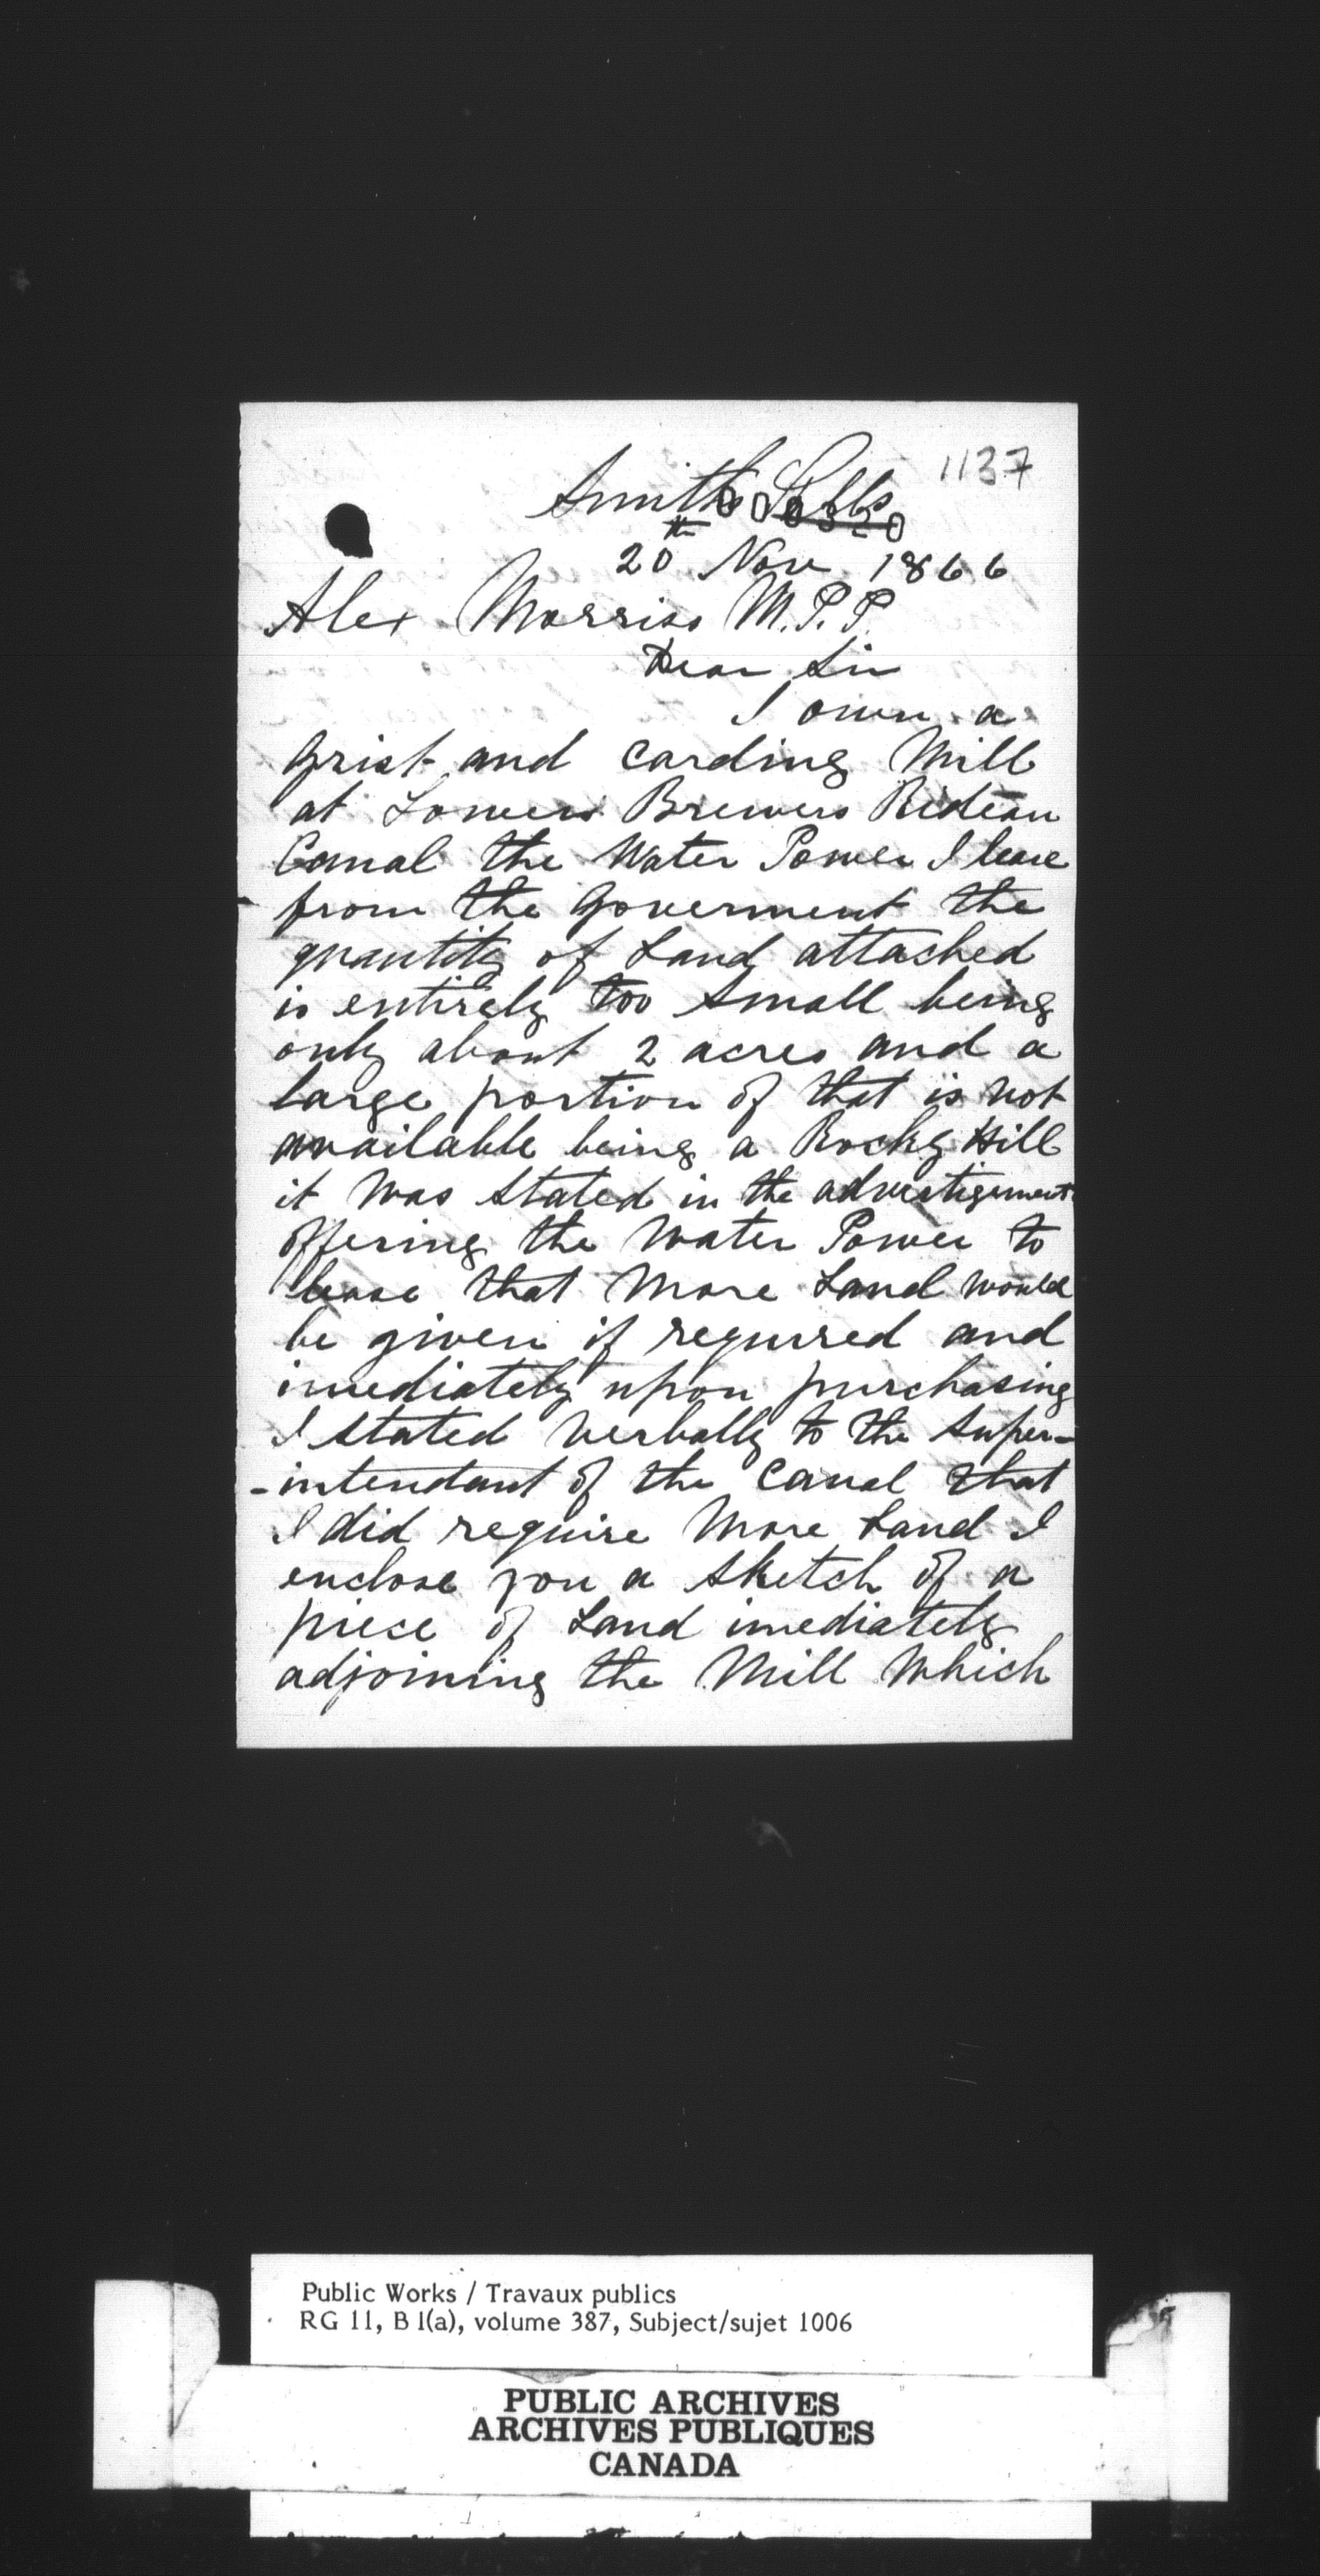 1137
Smiths Falls
20th Nov 1866
Alex Morriss M.P.P.
Dear Sir
I own a
Grist and Carding Mill
at Lowers Brewers Rideau
Canal the Water Power I lease
from the Goverment the
quantity of Land attached
is entirely too Small being
only about 2 acres and a
large portion of that is not
available being a Rocky Hill
it was Stated in the advertisement
offering the Water Power to
lease that More Land would
be given if required and
imediately upon purchasing
I Stated Verbally to the Super-
-intendant of the Canal that
I did require More Land I
enclose you a Sketch of a
piece of Land imediately
adjoining the Mill Which
Public Works / Travaux publics
RG 11, B 1(a), volume 387, Subject/sujet 1006
PUBLIC ARCHIVES
ARCHIVES PUBLIQUES
CANADA